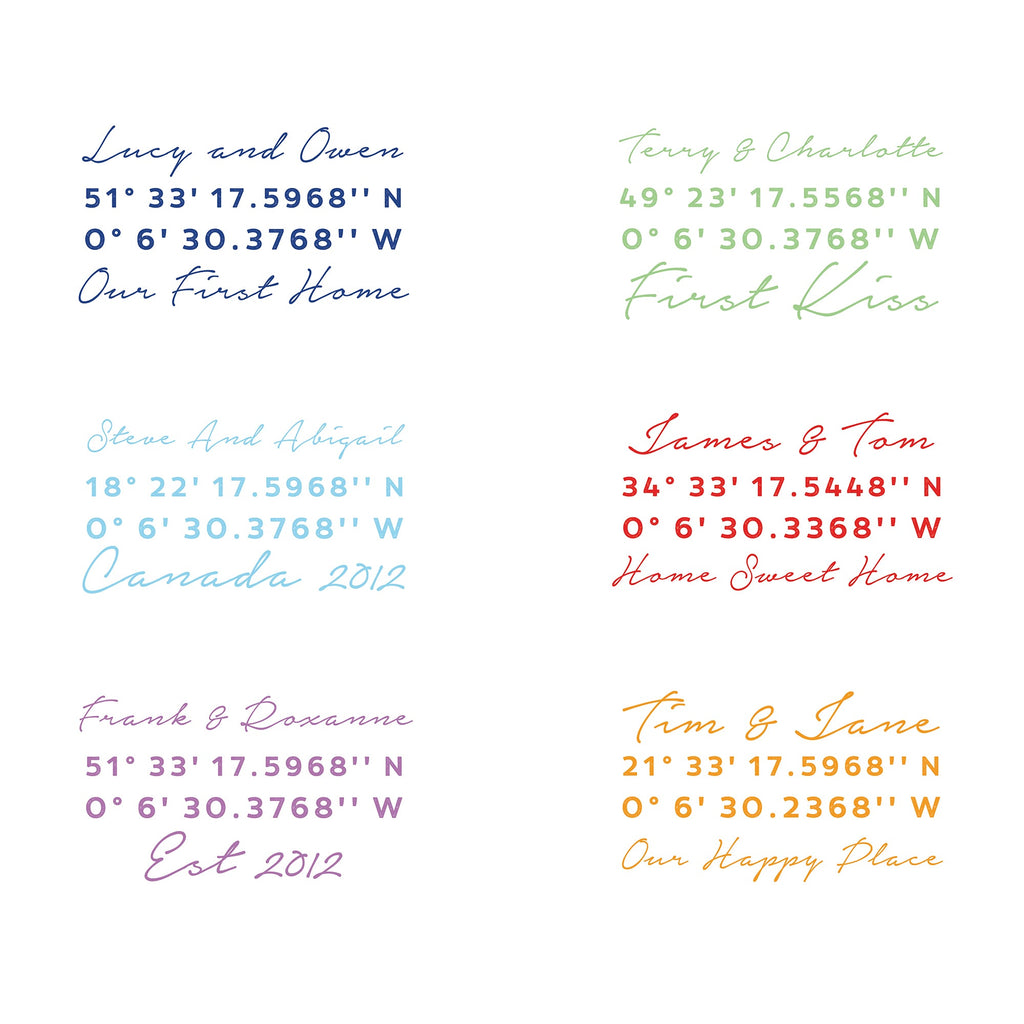 Lucy and Owen
51° 33' 17.5968'' N
0° 6' 30.3768'' W
Our First Home
Terry & Charlotte
49° 23' 17.5568'' N
0° 6' 30.3768'' W
First Kiss
Steve And Abigail
18° 22' 17.5968'' N
0° 6' 30.3768'' W
Canada 2012
James & Tom
34° 33' 17.5448'' N
0° 6' 30.3368'' W
Home Sweet Home
Frank & Roxanne
51° 33' 17.5968'' N
0° 6' 30.3768'' W
Est 2012
Tim & Jane
21° 33' 17.5968'' N
0° 6' 30.2368'' W
Our Happy Place